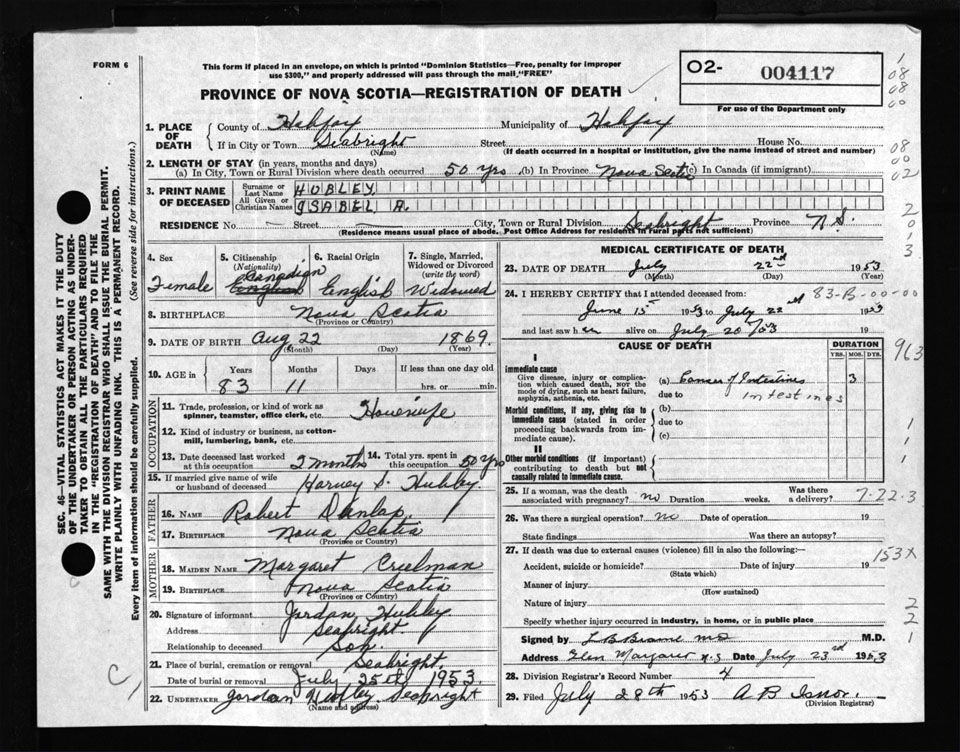 FORM 6
This form if placed in an envelope, on which is printed "Dominion Statistics—Free, penalty for improper
use $300," and properly addressed will pass through the mail "FREE"
PROVINCE OF NOVA SCOTIA—REGISTRATION OF DEATH
O2- 004117
For use of the Department only
1. PLACE OF DEATH { County of Halifax Municipality of Halifax
If in City or Town Seabright Street House No.
(Name) (If death occurred in a hospital or institution, give the name instead of street and number)
2. LENGTH OF STAY (in years, months and days)
(a) In City, Town or Rural Division where death occurred 50 yrs (b) In Province Nova Scotia (c) In Canada (if immigrant)
3. PRINT NAME OF DECEASED { Surname or Last Name HUBLEY
All Given or Christian Names ISABEL A.
RESIDENCE No. Street City, Town or Rural Division Seabright Province N.S.
(Residence means usual place of abode. Post Office Address for residents in rural parts not sufficient)
4. Sex Female
5. Citizenship (Nationality) Canadian English
6. Racial Origin English
7. Single, Married, Widowed or Divorced (write the word) Widowed
8. BIRTHPLACE Nova Scotia
(Province or Country)
9. DATE OF BIRTH Aug 22 1869
(Month) (Day) (Year)
10. AGE in { Years Months Days If less than one day old
83 11 hrs. or min.
OCCUPATION
11. Trade, profession, or kind of work as spinner, teamster, office clerk, etc. Housewife
12. Kind of industry or business, as cotton-mill, lumbering, bank, etc.
13. Date deceased last worked at this occupation 2 months 14. Total yrs. spent in this occupation 50 yrs
15. If married give name of wife or husband of deceased Harvey S. Hubley.
FATHER
16. NAME Robert Dunlap
17. BIRTHPLACE Nova Scotia
(Province or Country)
MOTHER
18. MAIDEN NAME Margaret Creelman
19. BIRTHPLACE Nova Scotia
(Province or Country)
20. Signature of informant Jordan Hubley
Address Seabright
Relationship to deceased Son.
21. Place of burial, cremation or removal Seabright.
Date of burial or removal July 25th 1953.
22. UNDERTAKER Jordan Hubley Seabright
(Name and address)
MEDICAL CERTIFICATE OF DEATH
23. DATE OF DEATH July 22nd 1953
(Month) (Day) (Year)
24. I HEREBY CERTIFY that I attended deceased from: 83-B-00-00
June 15 1953 to July 22nd 1953
and last saw her alive on July 20/53 19
CAUSE OF DEATH DURATION
YRS. MOS. DYS.
963
I
Immediate cause
Give disease, injury or complication which caused death, NOT the mode of dying, such as heart failure, asphyxia, asthenia, etc.
(a) Cancer of Intestines 3
due to intestines
Morbid conditions, if any, giving rise to immediate cause (stated in order proceeding backwards from immediate cause).
(b)
due to
(c)
II
Other morbid conditions (if important) contributing to death but not causally related to immediate cause.
25. If a woman, was the death associated with pregnancy? no Duration weeks. Was there a delivery? 7-22-3
26. Was there a surgical operation? no Date of operation 19
State findings Was there an autopsy?
27. If death was due to external causes (violence) fill in also the following:— 153X
Accident, suicide or homicide? Date of injury 19
(State which)
Manner of injury
(How sustained)
Nature of injury
Specify whether injury occurred in industry, in home, or in public place
Signed by M.D.
Address Glen Margaret N.S Date July 23rd 1953
28. Division Registrar's Record Number 4
29. Filed July 28th 1953 A B Isnor.
(Division Registrar)
SEC. 46—VITAL STATISTICS ACT MAKES IT THE DUTY
OF THE UNDERTAKER OR PERSON ACTING AS UNDERTAKER TO OBTAIN ALL THE PARTICULARS REQUIRED
IN THE "REGISTRATION OF DEATH" AND TO FILE THE
SAME WITH THE DIVISION REGISTRAR WHO SHALL ISSUE THE BURIAL PERMIT.
WRITE PLAINLY WITH UNFADING INK. THIS IS A PERMANENT RECORD.
Every item of information should be carefully supplied. (See reverse side for instructions.)